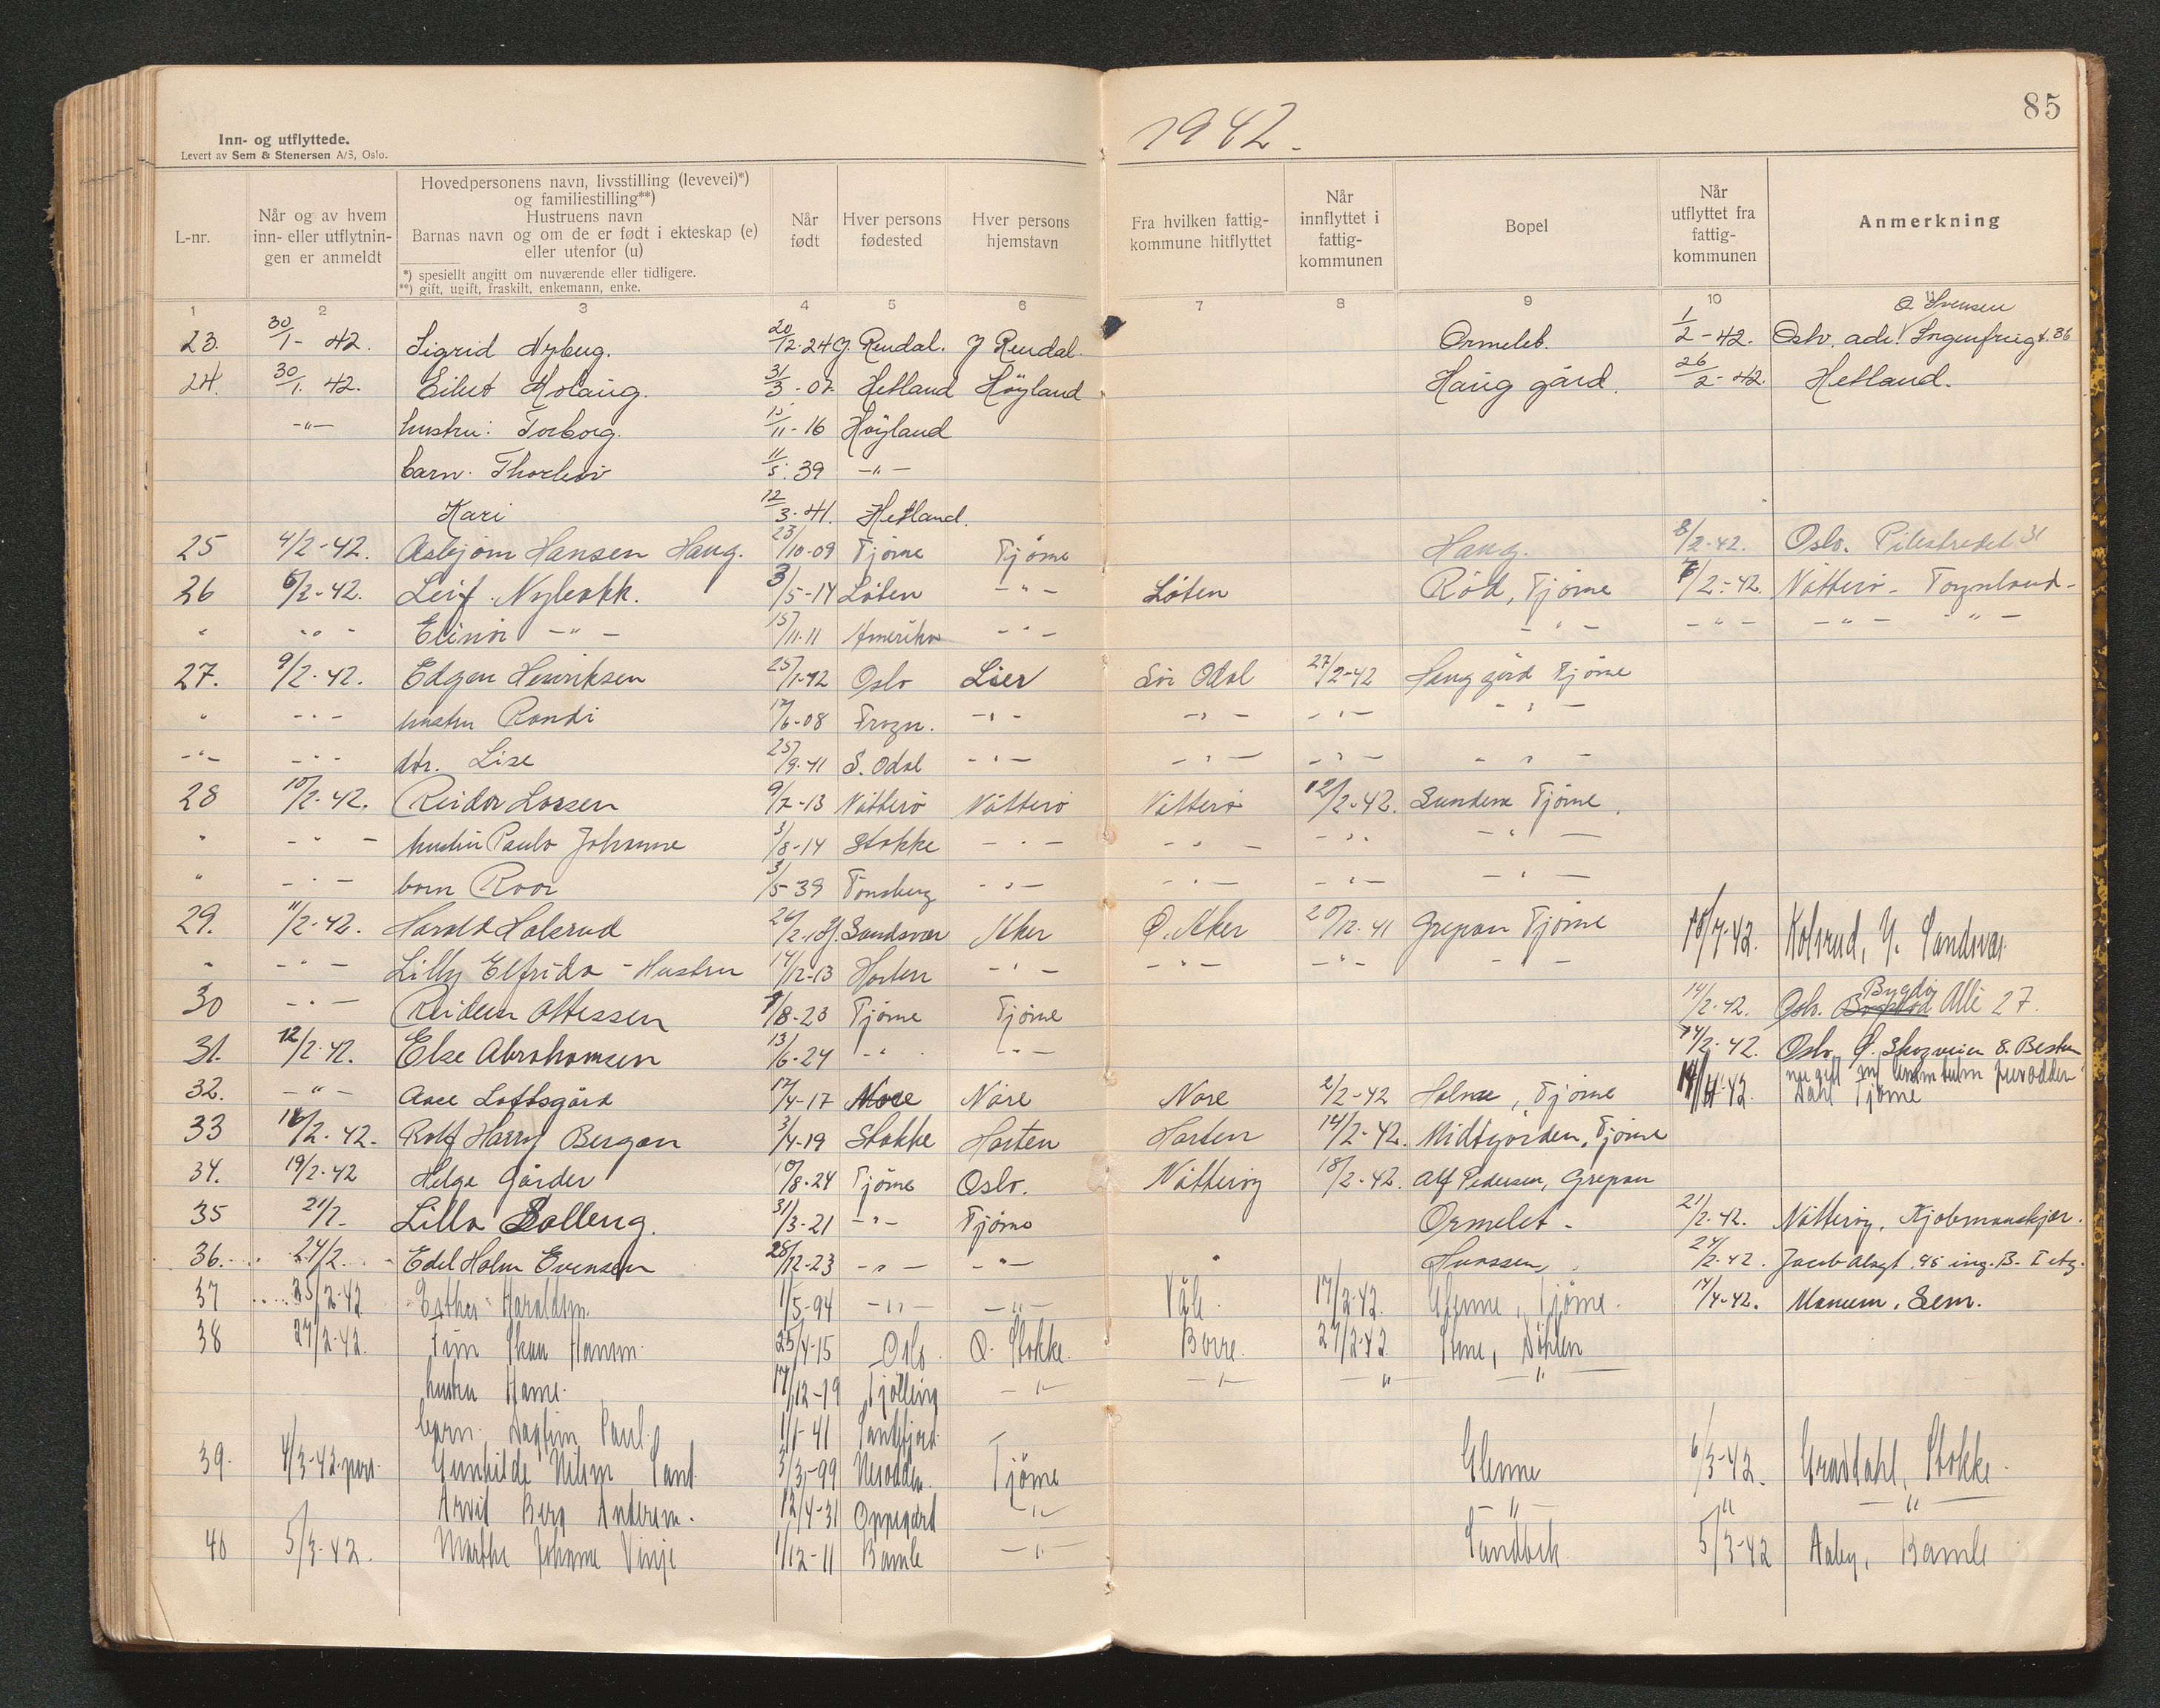 85
1942.
Inn- og utflyttede.
Levert av Sem & Stenersen A/S, Oslo.
L-nr.
Når og av hvem inn- eller utflytnin-gen er anmeldt
Hovedpersonens navn, livsstilling (levevei)*)
og familiestilling**)
Hustruens navn
Barnas navn og om de er født i ekteskap (e)
eller utenfor (u)
*) spesielt angitt om nuværende eller tidligere.
**) gift, ugift, fraskilt, enkemann, enke.
Når født
Hver persons fødested
Hver persons hjemstavn
Fra hvilken fattig-kommune hitflyttet
Når innflyttet i fattig-kommunen
Bopel
Når utflyttet fra fattig-kommunen
Anmerkning
1 2 3 4 5 6 7 8 9 10
23. 30/1- 42. Sigrid Nyberg. 20/12-24 Y. Rendal. Y Rendal. Ormelet. 1/2-42. Oslo. adr. Sorgenfrigt. 36
24. 30/1. 42. Eilert Holaug. 31/3-07 Hetland Høyland Haug gård. 26/2-42. Hetland.
-"- hustru: Torborg. 15/11-16 Høyland
barn. Thorleiv 11/5. 39 -"-
Kari 12/3-41. Hetland.
25 4/2-42. Asbjørn Hansen Haug. 23/10-09 Tjøme Tjøme Haug. 8/2-42. Oslo. Pilestredet 31
26 6/2-42. Leif Nybakk. 3/5-14 Løten -"- Løten Rød, Tjøme 7/2-42. Nøtterø -
" -"- Elinor -"- 15/11-11 Amerika -"- -"- -"- -"- -"-
27. 9/2-42. Edgar Henriksen 25/1-12 Oslo Lier Sør Odal 27/2-42 Haug gård Tjøme
" -"- hustru Randi 17/6-08 Frogn. -"- -"- -"- -"-
-"- -"- dtr. Lise 25/9-41 S. Odal -"- -"- -"- -"-
28 10/2-42. Reidar Larsen 9/7-13 Nøtterø Nøtterø Nøtterø 12/2-42. Sundene Tjøme.
" -"- hustru Paula Johanne 3/8-14 Stokke -"- -"- -"- -"-
" -"- barn Roar 3/5-39 Tønsberg -"- -"- -"- -"-
29. 11/2-42. Harald Kolsrud 26/2-10 Y. Sandsvær Aker Ø. Aker 20/12-41 Grepan Tjøme 18/7-42. Kolsrud, Y. Sandsvær
" -"- Lilly Elfrida - Hustru 14/12-13 Horten -"- -"- -"- -"-
30 -"- Reidun Ottessen 7/8-23 Tjøme Tjøme 14/2-42. Oslo. Bygdøy Allè 27.
31. 12/2-42. Else Abrahamsen 13/6-24 -"- -"- 14/2-42. Oslo, Ø. Skogveien 8. Bestun
32. -"- Aase Loftsgård 17/4-17 Nore Nore Nore 2/2-42 Holmen, Tjøme 14/4-42. Dahl Tjøme
33 16/2-42. Rolf Harry Bergan 3/4-19 Stokke Horten Horten 14/2-42. Midtgården, Tjøme
34. 19/2-42 Helga Gårder 10/8-24 Tjøme Oslo. Nøtterøy 18/2-42. Alf Pedersen, Grepan
35 21/2- Lilla Solleng. 31/3-21 -"- Tjøme Ormelet - 21/2-42. Nøtterøy, Kjøbmanskjær.
36. 24/2. Edel Holm Evensen 28/12-23 -"- -"- " Hvassen, 24/2-42. Jacob Alsgt. 45 ing. B. I etg.
37 25/2-42 Esther Haraldsen 1/5-94 -"- -"- Våle. 17/2-42. Glenne, Tjøme. 14/4-42. Manum, Sem.
38 27/2-42. Finn Skau Hansen. 25/4-15 Oslo Q. Stokke. Borre. 27/2-42. Stene,
hustru Hanne. 17/12-19 Tjølling -"- -"- -"- -"-
barn. Dagfinn Paul. 1/1-41 Sandefjord
39. 4/3-42 Gunhilde Nilsen Sand 3/3-99 Nesodden. Tjøme Glenne 6/3-42. Gravdahl, Stokke.
Arvid Berg Andersen. 12/4-31 Oppegård -"- -"- " -"-
40 5/3-42. Marthe Johanne Vinje 1/12-11 Bamle -"- Sandbek 5/3-42 Aaby, Bamle